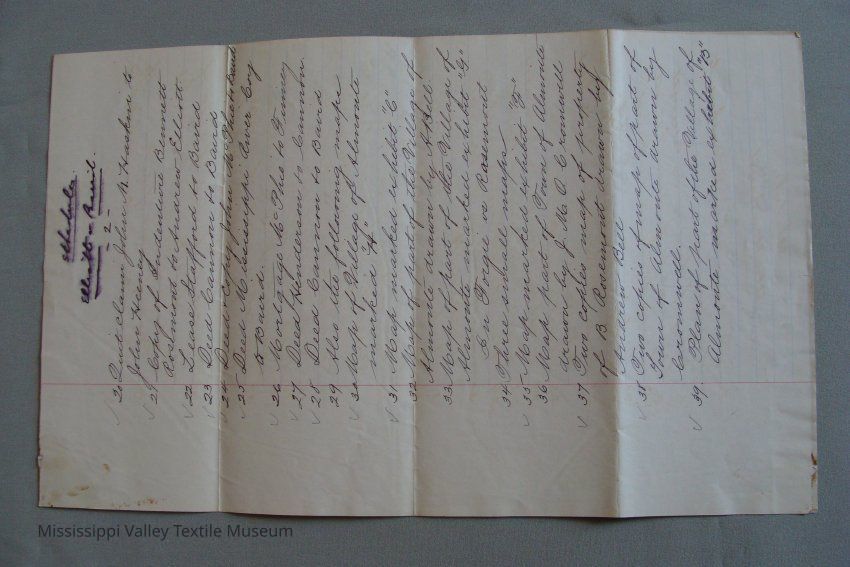 Schedule
Elliott vs Baird.
- 2 -
20 Quit Claim John B. Haskin to
John Heeney
21 Copy of Indenture Bennett
Rosamond to Andrew Elliott
22 Lease Stafford to Baird
23 Deed Cannon to Baird
24 Deed Copy John M to Baird
25 Deed Mississippi River Coy
to Baird.
26 Mortgage McPhie to
27 Deed Henderson to Cannon.
28 Deed Cannon to Baird
29 Also the following maps
30 Map of Village of Almonte
marked "A"
31 Map marked exhibit "C"
32 Map of part of the Village of
Almonte drawn by A Bell
33 Map of part of the Village of
Almonte marked exhibit "G"
in Forgie vs Rosamond
34 Three small maps
35 Map marked exhibit "F"
36 Map part of Town of Almonte
drawn by J M O Cromwell
37 Two copies map of property
of B Rosamond drawn by
Andrew Bell
38 Two copies of map of part of
Town of Almonte drawn by
Cromwell.
39. Plan of part of the Village of
Almonte marked exhibit "B"
Mississippi Valley Textile Museum